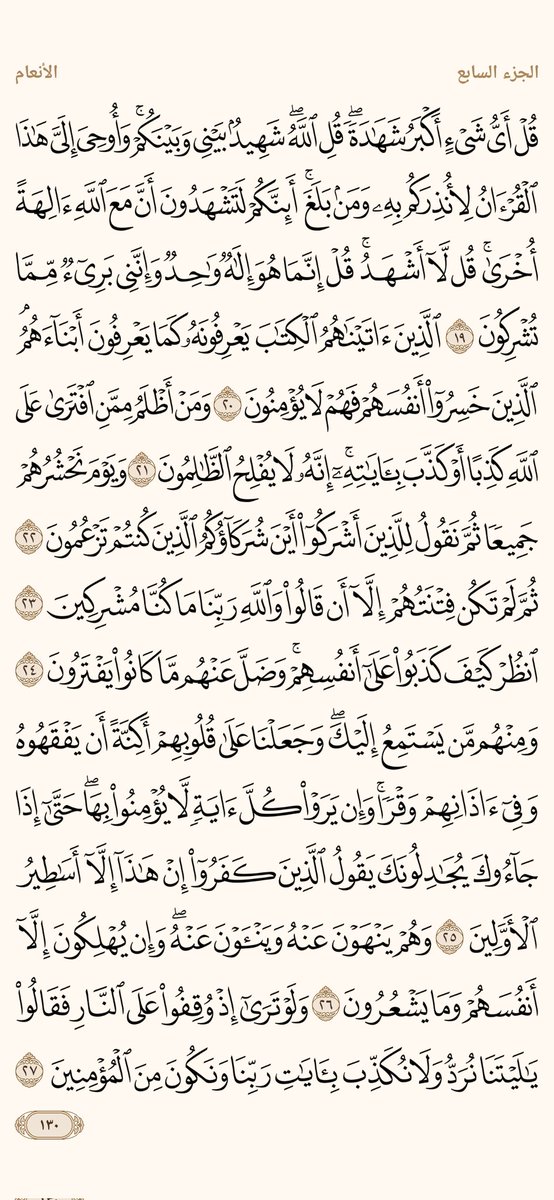 الجزء السابع الأنعام
قُلۡ أَيُّ شَيۡءٍ أَكۡبَرُ شَهَٰدَةٗۖ قُلِ ٱللَّهُۖ شَهِيدُۢ بَيۡنِي وَبَيۡنَكُمۡۚ وَأُوحِيَ إِلَيَّ هَٰذَا
ٱلۡقُرۡءَانُ لِأُنذِرَكُم بِهِۦ وَمَنۢ بَلَغَۚ أَئِنَّكُمۡ لَتَشۡهَدُونَ أَنَّ مَعَ ٱللَّهِ ءَالِهَةً
أُخۡرَىٰۚ قُل لَّآ أَشۡهَدُۚ قُلۡ إِنَّمَا هُوَ إِلَٰهٞ وَٰحِدٞ وَإِنَّنِي بَرِيٓءٞ مِّمَّا
تُشۡرِكُونَ ١٩ ٱلَّذِينَ ءَاتَيۡنَٰهُمُ ٱلۡكِتَٰبَ يَعۡرِفُونَهُۥ كَمَا يَعۡرِفُونَ أَبۡنَآءَهُمُۘ
ٱلَّذِينَ خَسِرُوٓاْ أَنفُسَهُمۡ فَهُمۡ لَا يُؤۡمِنُونَ ٢٠ وَمَنۡ أَظۡلَمُ مِمَّنِ ٱفۡتَرَىٰ عَلَى
ٱللَّهِ كَذِبًا أَوۡ كَذَّبَ بِـَٔايَٰتِهِۦٓۚ إِنَّهُۥ لَا يُفۡلِحُ ٱلظَّٰلِمُونَ ٢١ وَيَوۡمَ نَحۡشُرُهُمۡ
جَمِيعٗا ثُمَّ نَقُولُ لِلَّذِينَ أَشۡرَكُوٓاْ أَيۡنَ شُرَكَآؤُكُمُ ٱلَّذِينَ كُنتُمۡ تَزۡعُمُونَ ٢٢
ثُمَّ لَمۡ تَكُن فِتۡنَتُهُمۡ إِلَّآ أَن قَالُواْ وَٱللَّهِ رَبِّنَا مَا كُنَّا مُشۡرِكِينَ ٢٣
ٱنظُرۡ كَيۡفَ كَذَبُواْ عَلَىٰٓ أَنفُسِهِمۡۚ وَضَلَّ عَنۡهُم مَّا كَانُواْ يَفۡتَرُونَ ٢٤
وَمِنۡهُم مَّن يَسۡتَمِعُ إِلَيۡكَۖ وَجَعَلۡنَا عَلَىٰ قُلُوبِهِمۡ أَكِنَّةً أَن يَفۡقَهُوهُ
وَفِيٓ ءَاذَانِهِمۡ وَقۡرٗاۚ وَإِن يَرَوۡاْ كُلَّ ءَايَةٖ لَّا يُؤۡمِنُواْ بِهَاۖ حَتَّىٰٓ إِذَا
جَآءُوكَ يُجَٰدِلُونَكَ يَقُولُ ٱلَّذِينَ كَفَرُوٓاْ إِنۡ هَٰذَآ إِلَّآ أَسَٰطِيرُ
ٱلۡأَوَّلِينَ ٢٥ وَهُمۡ يَنۡهَوۡنَ عَنۡهُ وَيَنۡـَٔوۡنَ عَنۡهُۖ وَإِن يُهۡلِكُونَ إِلَّآ
أَنفُسَهُمۡ وَمَا يَشۡعُرُونَ ٢٦ وَلَوۡ تَرَىٰٓ إِذۡ وُقِفُواْ عَلَى ٱلنَّارِ فَقَالُواْ
يَٰلَيۡتَنَا نُرَدُّ وَلَا نُكَذِّبَ بِـَٔايَٰتِ رَبِّنَا وَنَكُونَ مِنَ ٱلۡمُؤۡمِنِينَ ٢٧
١٣٠